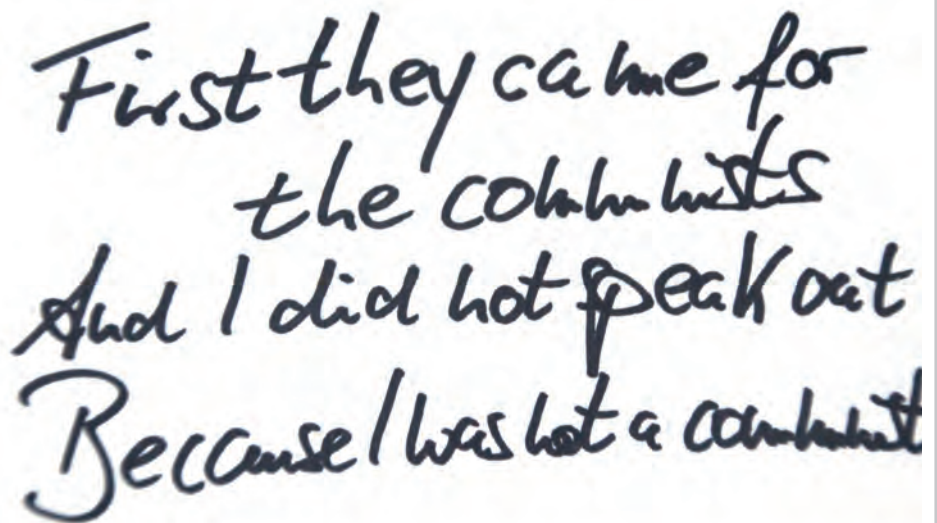 First they came for
the communists
And I did not speak out
Because I was not a communist